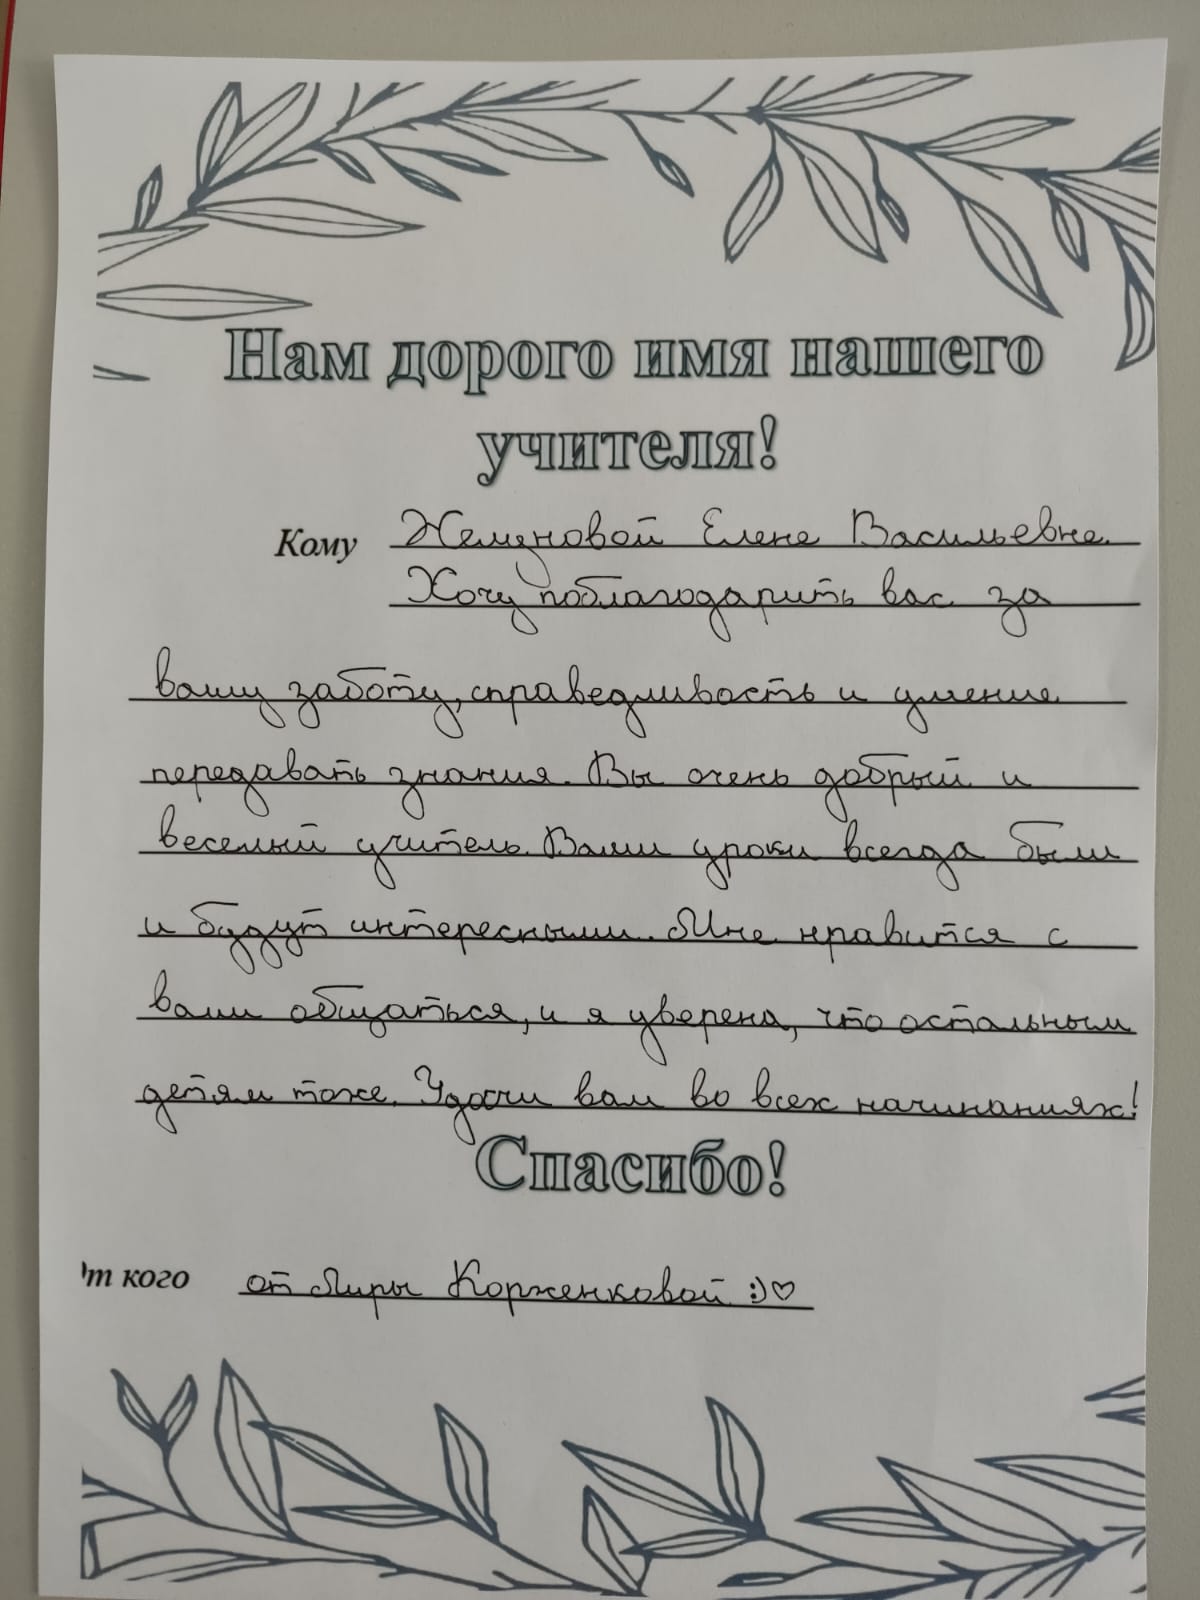 Нам дорого имя нашего
учителя!
Кому Елене Васильевне.
Хочу поблагодарить вас за
вашу заботу, справедливость и умение
передавать знания. Вы очень добрый и
веселый учитель. Ваши уроки всегда были
и будут интересными. Мне нравится с
вами общаться, и я уверена, что остальным
детям тоже. Удачи вам во всех начинаниях!
Спасибо!
т кого от Лиры Корженковой :)♡